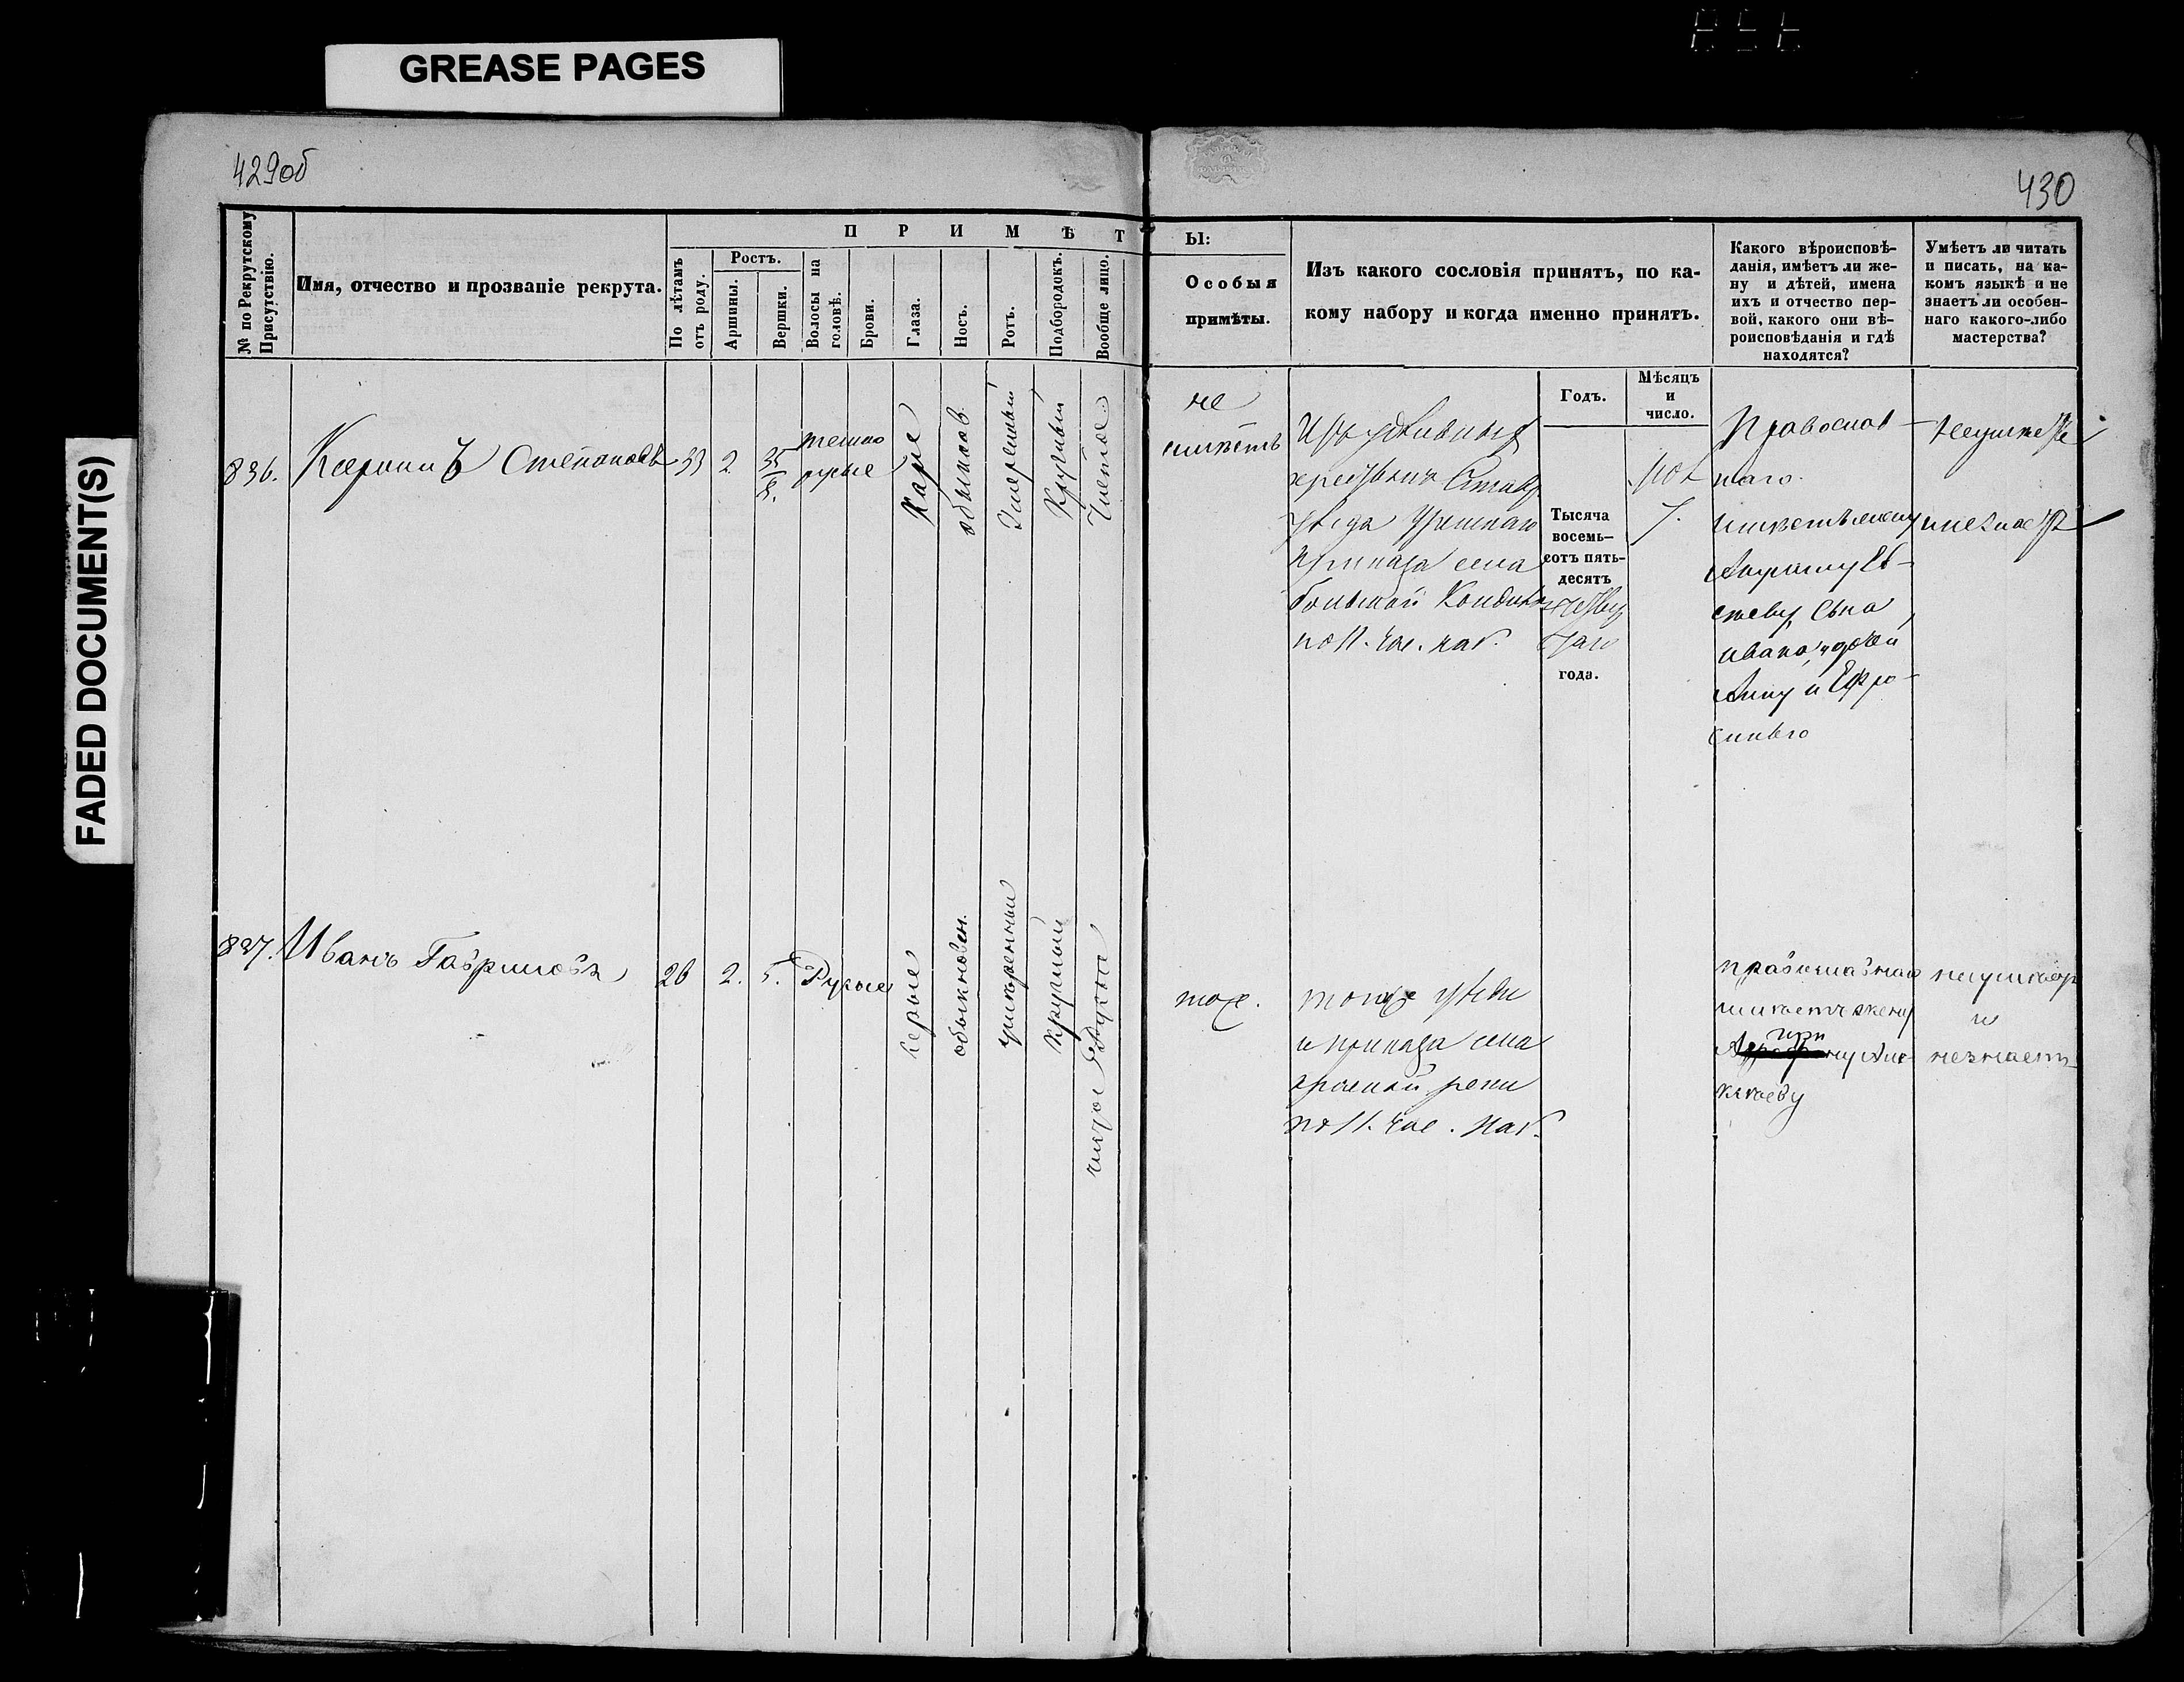 GREASE PAGES
FADED DOCUMENT(S)
429об
430
№ по Рекрутскому Присутствію.
Имя, отчество и прозваніе рекрута.
ПРИМѢТЫ:
По лѣтамъ отъ роду.
Ростъ.
Аршины.
Вершки.
Волосы на головѣ.
Брови.
Глаза.
Носъ.
Ротъ.
Подбородокъ.
Вообще лицо.
Особыя
примѣты.
Изъ какого сословія принятъ, по ка-
кому набору и когда именно принятъ.
Годъ.
Мѣсяцъ
и
число.
Какого вѣроисповѣ-
данія, имѣетъ ли же-
ну и дѣтей, имена
ихъ и отчество пер-
вой, какого они вѣ-
роисповѣданія и гдѣ
находятся?
Умѣетъ ли читать
и писать, на ка-
комъ языкѣ и не
знаетъ ли особен-
наго какого-либо
мастерства?
836.
Степановъ
33
2
темно
русые
Карие
обыкнов
Умеренный
Круглый
Чистое
не
имѣетъ
Изъ удельныхъ
уезда
Приказа села
большой
по 11. час. наб.
Тысяча
восемь-
сотъ пять-
десятъ
года.
7.
Православ-
наго.
имѣетъ жену
сына
ивана, дочей
Анну и Ефро-
синью
837.
Иванъ Гавриловъ
26
2.
5.
Русые
серые
обыкновен.
умеренный
круглый
тож.
тогоже уезда
и приказа села
красной реки
по 11. час. наб.
православнаго
имѣетъ жену
и
незнаетъ